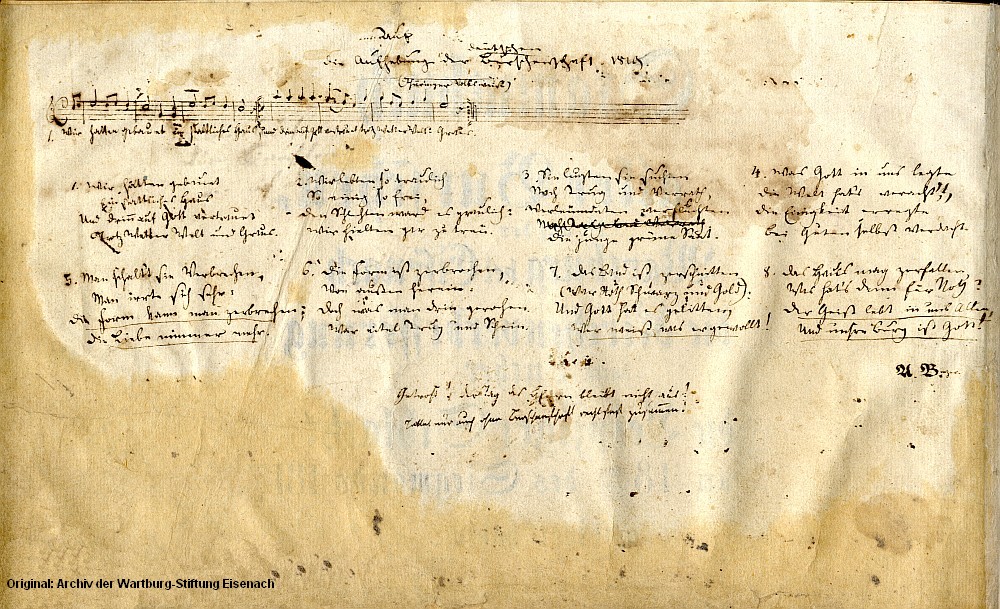 Auf
deutschen
die Aufhebung der Burschenschaft. 1819.
(Thüringer Volksmelod.)
1. Wir hatten gebauet ein stattliches Haus und drin auf Gott vertrauet trotz Wetter Welt u. Graus.
1. Wir hatten gebauet
Ein stattliches Haus
Und drin auf Gott vertrauet,
Trotz Wetter Welt und Graus.
2. Wir lebten so traulich
So einig so frei,
Den Schlechten ward es graulich:
Wir hielten gar zu treu.
3. Sie lugten sie suchten
Nach Trug und Verrath,
Verleumdeten, verfluchten
Die junge grüne Saat.
4. Was Gott in uns legte
die Welt hat's veracht't,
die Einigkeit erregte
bei Guten selbst Verdacht.
5. Man schalt sie Verbrechen,
Man irrte sich sehr:
die Form kann man zerbrechen;
die Liebe nimmermehr.
6. Die Form ist zerbrochen,
Von außen herein:
Doch was man drin gerochen
War eitel Trug und Schein.
7. Das Band ist zerschnitten
(War Roth Schwarz und Gold):
Und Gott hat es gelitten
Wer weiß was er gewollt!
8. Das Haus mag zerfallen,
Was hat's denn für Noth?
Der Geist lebt in uns Allen,
Und unsre Burg ist Gott!
A. B.
Getrost! der Tag des Herrn bleibt nicht aus!
nur auch ohne Burschenschaft recht fest zusammen!
Original: Archiv der Wartburg-Stiftung Eisenach